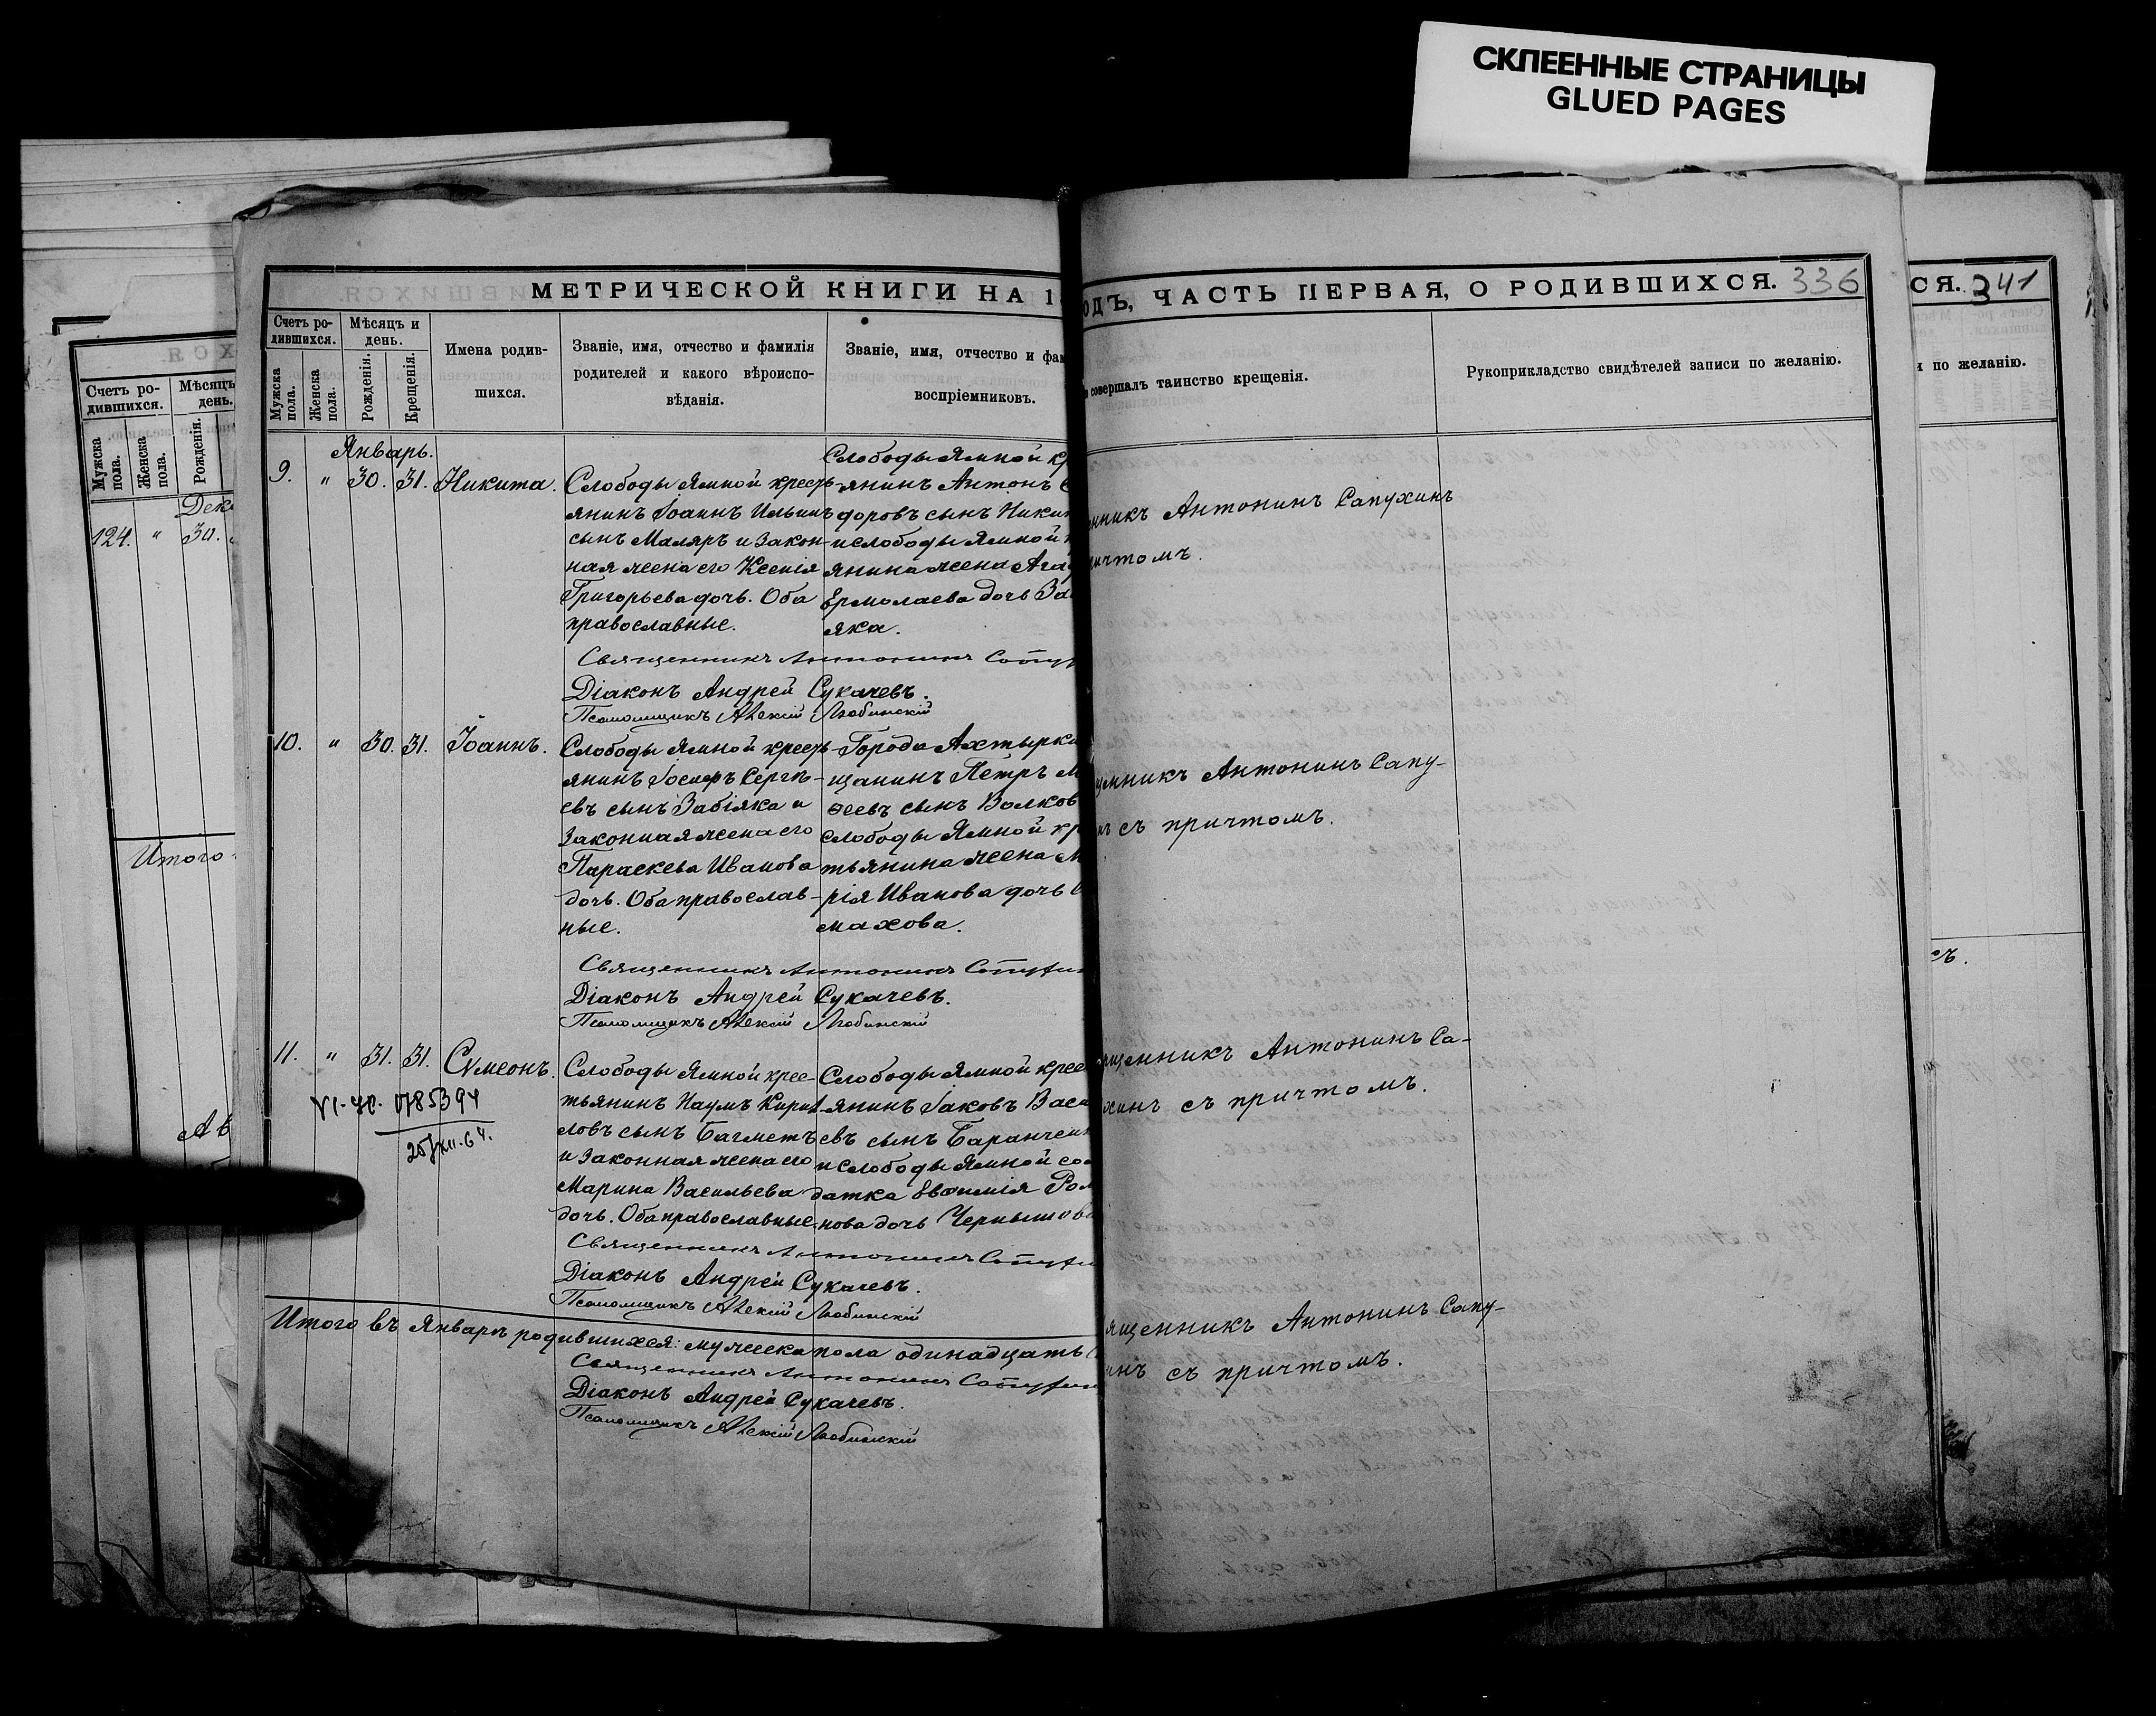 СКЛЕЕННЫЕ СТРАНИЦЫ
GLUED PAGES
МЕТРИЧЕСКОЙ КНИГИ НА 1
ОДЪ, ЧАСТЬ ПЕРВАЯ, О РОДИВШИХСЯ. 336
СЯ. 341
Счетъ ро-
дившихся.
Мѣсяцъ и
день.
Мужска
пола.
Женска
пола.
Рожденія.
Крещенія.
Имена родив-
шихся.
Званіе, имя, отчество и фамилія
родителей и какого вѣроиспо-
вѣданія.
Званіе, имя, отчество и фам
воспріемниковъ.
совершалъ таинство крещенія.
Рукоприкладство свидѣтелей записи по желанію.
по желанію.
Счетъ ро-
дившихся.
Мѣсяцъ
день.
Мужска
пола.
Женска
пола.
Рожденія.
Дек
124. " 30.
Итого
Ав
Январь.
9. " 30. 31. Никита.
Слободы Ямной кресть-
янинъ Іоаннъ Ильинъ
сынъ Маляръ и закон-
ная жена его Ксенія
Григорьева дочь. Оба
православные.
Слободы Ямной кр
янинъ Антонъ
доровъ сынъ Ники
и слободы Ямной
янина жена Ага
Ермолаева дочь За
яка.
нникъ Антонинъ Сапухинъ
ичтомъ.
Священникъ Антонинъ Сапу
Діаконъ Андрей Сукачевъ.
Псаломщикъ Алексій Любинскій
10. " 30. 31. Іоаннъ.
Слободы Ямной кресть-
янинъ Іосифъ Сергѣ-
евъ сынъ Забіяка и
законная жена его
Параскева Иванова
дочь. Оба православ-
ные.
Города Ахтырки
щанинъ Петръ М
ѳеевъ сынъ Волков
слободы Ямной кр
тьянина жена М
рія Иванова дочь
махова.
щенникъ Антонинъ Сапу-
нъ съ причтомъ.
Священникъ Антонинъ Сапухин
Діаконъ Андрей Сукачевъ.
Псаломщикъ Алексій Любинскій
11. " 31. 31. Сѵмеонъ.
Слободы Ямной крес-
тьянинъ Наумъ Кирил-
ловъ сынъ Багметъ
и законная жена его
Марина Васильева
дочь. Оба православные.
Слободы Ямной крес
янинъ Іаковъ Васи
евъ сынъ Баранчен
и слободы Ямной сол
датка Евѳимія Ром
нова дочь Чернышова
ященникъ Антонинъ Са-
хинъ съ причтомъ.
Священникъ Антонинъ Сапухи
Діаконъ Андрей Сукачевъ.
Псаломщикъ Алексій Любинскій
Итого въ Январѣ родившихся: мужеска пола одинадцать (
ященникъ Антонинъ Сапу-
инъ съ причтомъ.
Священникъ Антонинъ Сапухин
Діаконъ Андрей Сукачевъ.
Псаломщикъ Алексій Любинскій